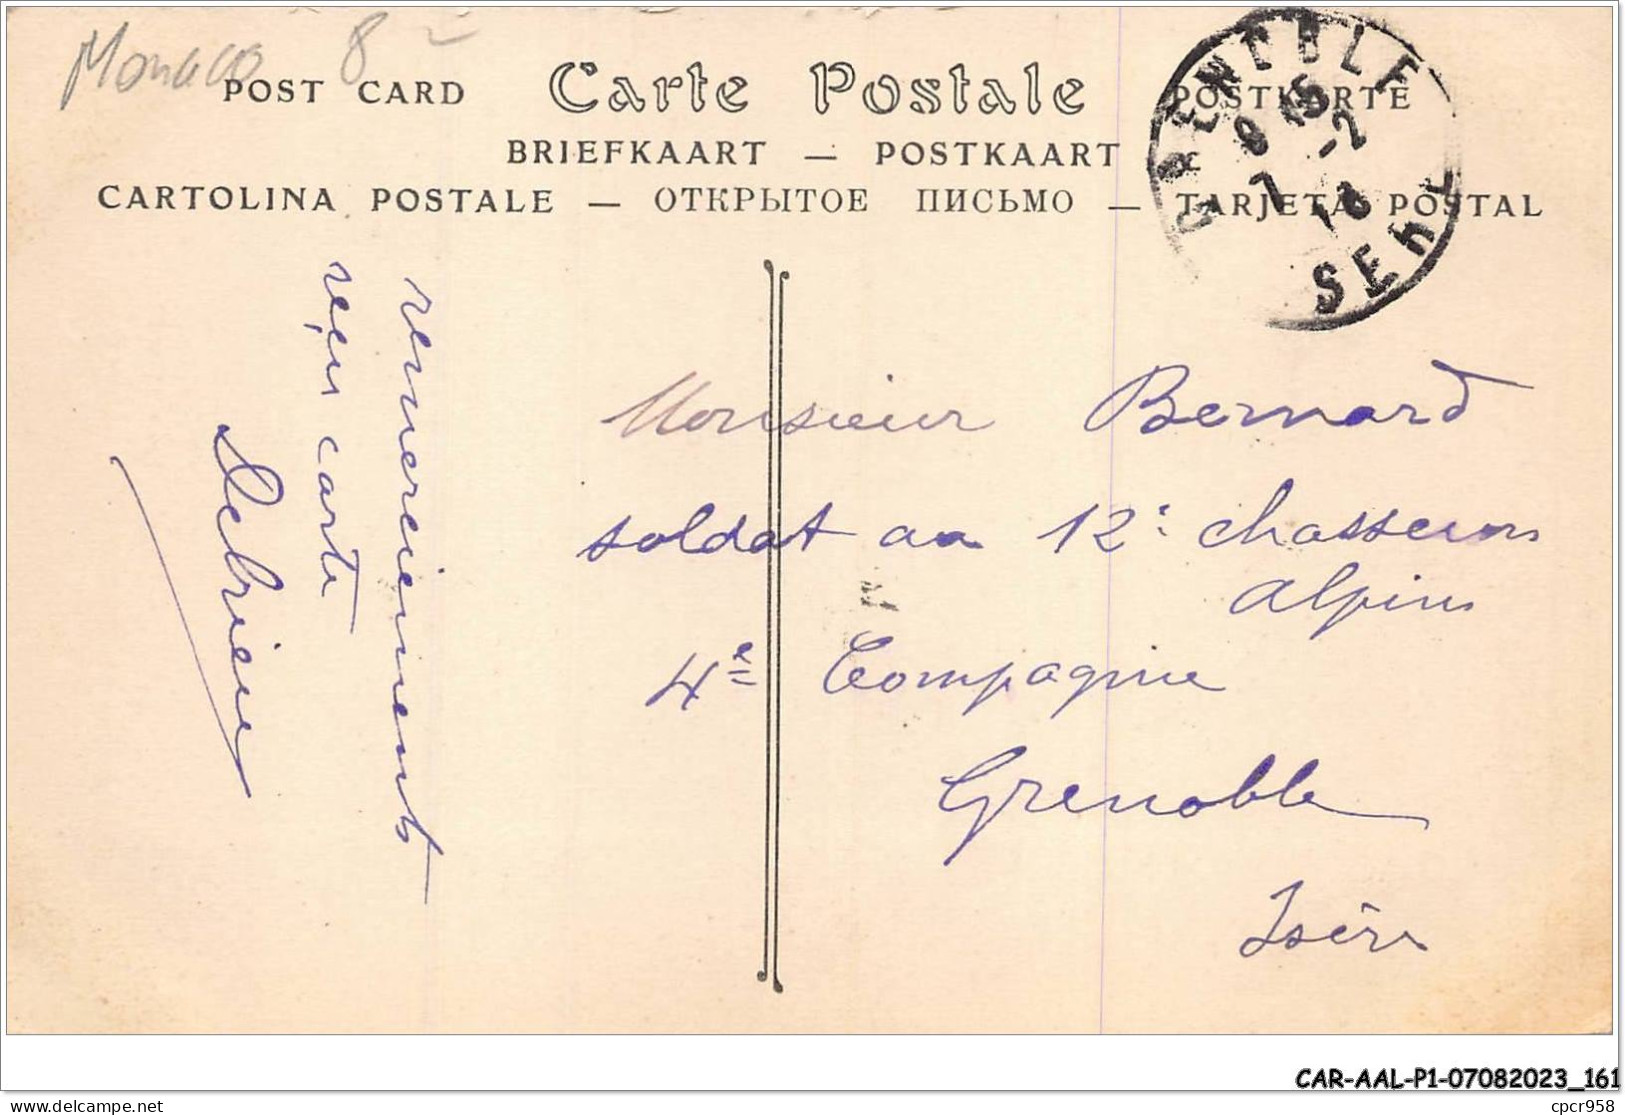 Monaco 8
POST CARD Carte Postale POSTKARTE
BRIEFKAART — POSTKAART
CARTOLINA POSTALE — ОТКРЫТОЕ ПИСЬМО — TARJETA POSTAL
GRENOBLE
8 15
7 -2
remerciements
reçu carte
Monsieur Bernard
soldat au 12e chasseurs
alpins
4e Compagnie
Grenoble
Isère
CAR-AAL-P1-07082023_161
delcampe.net
cpcr958